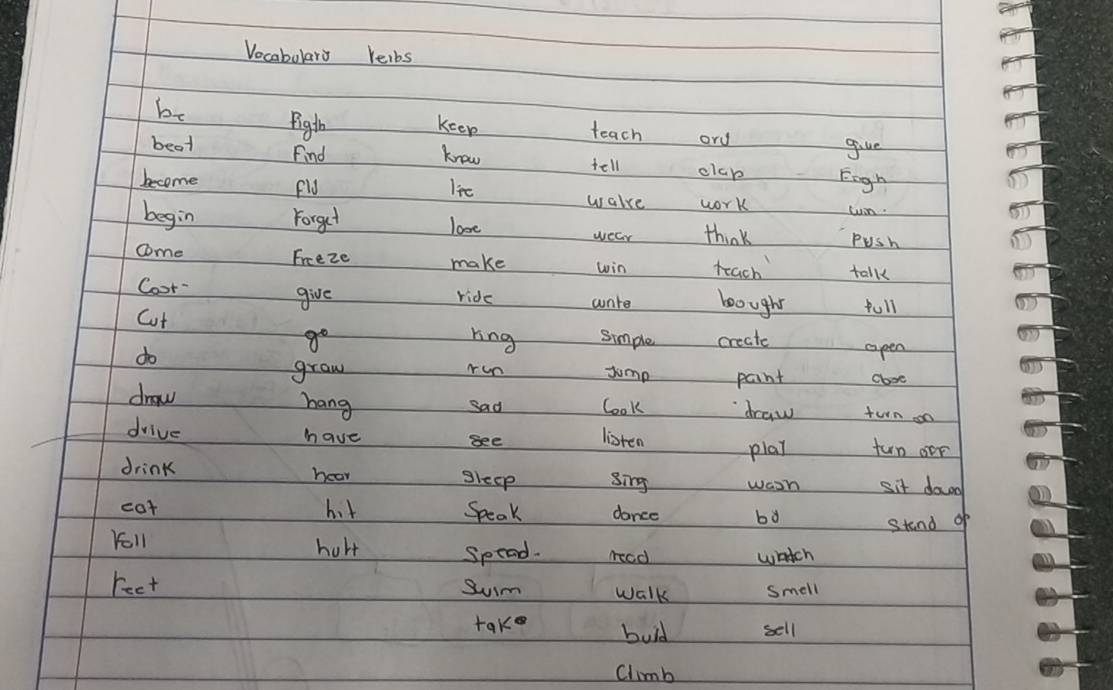 Vocabulary Verbs
be Figth keep teach cry give
beat Find know tell clap Figh
become Fly lie walke work win.
begin Forget lose wear think Push
come Freeze make win teach talk
Cost give ride write bought full
Cut go ring simple create open
do graw run Jump paint close
draw hang sad Cook draw turn on
drive have see listen play turn off
drink hear sleep Sing wash sit down
eat hit Speak dance
Fall hurt Spead. read watch
Feet Swim walk smell
take buid sell
Climb